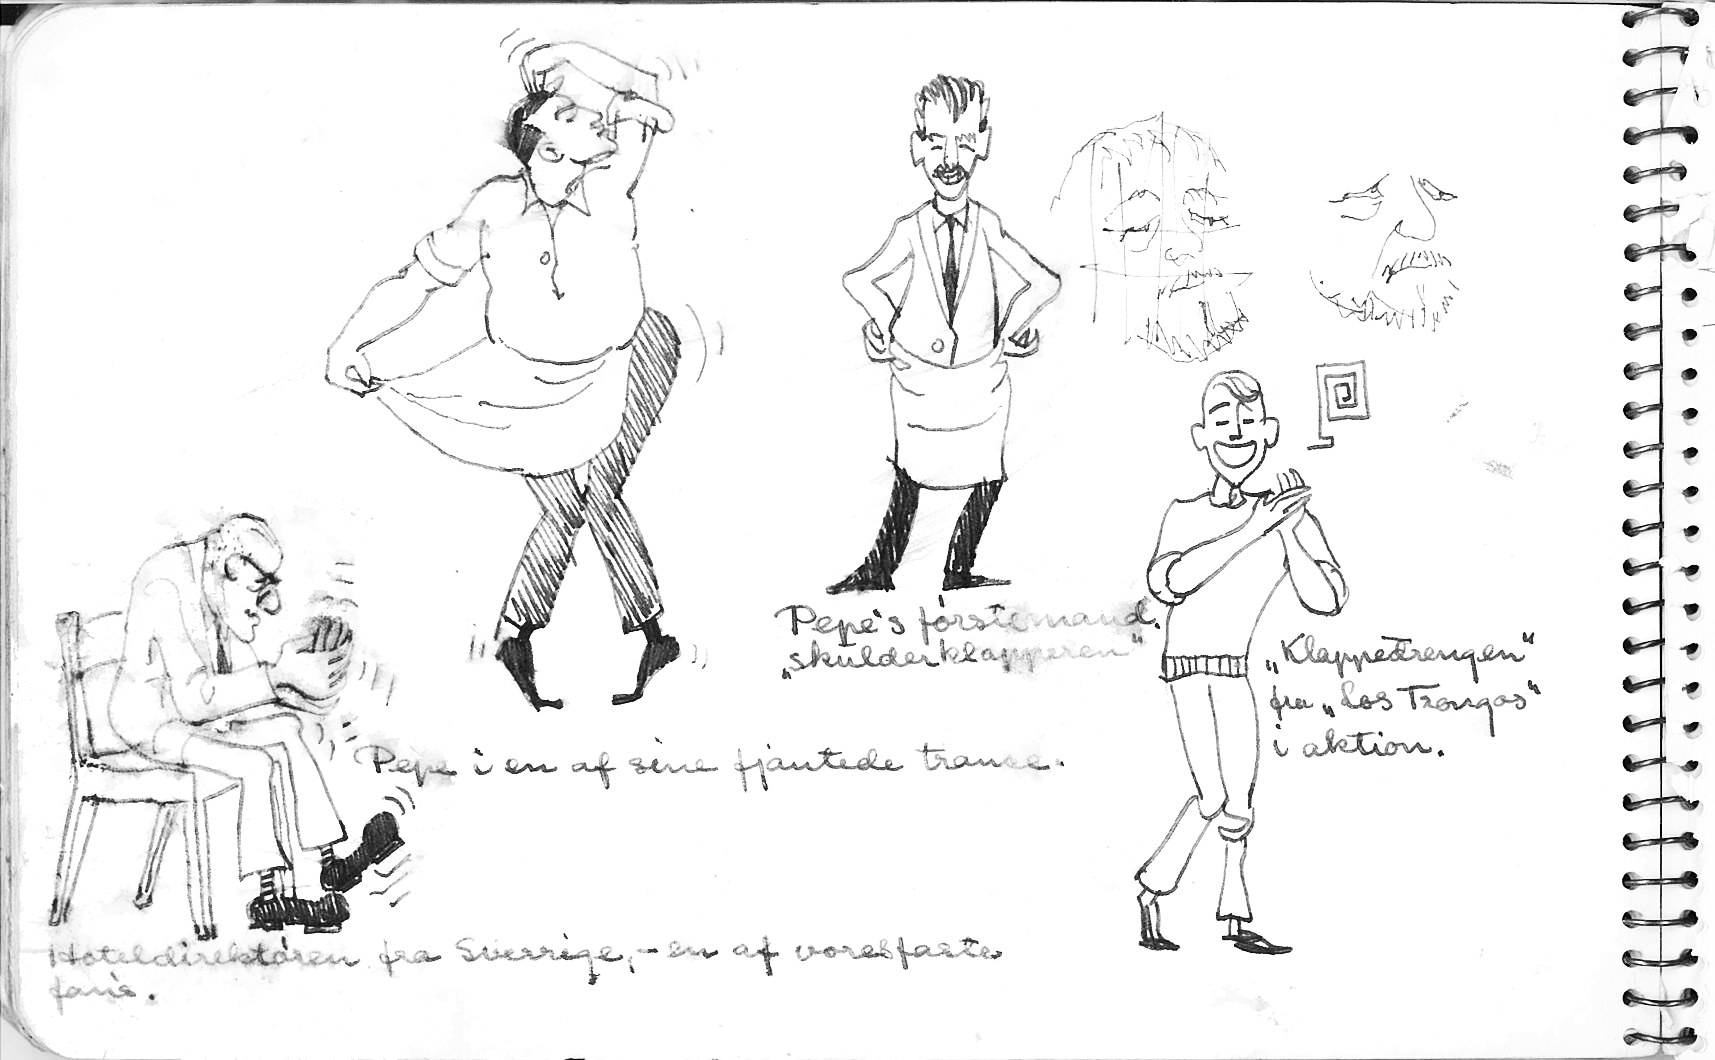 Pepe's förstemand.
„skulderklapperen"
„Klappedrengen"
fra „Los Trangos"
i aktion.
Pepe i en af sine fjantede trance.
Hoteldirektören fra Sverrige, - en af vores faste
fans.